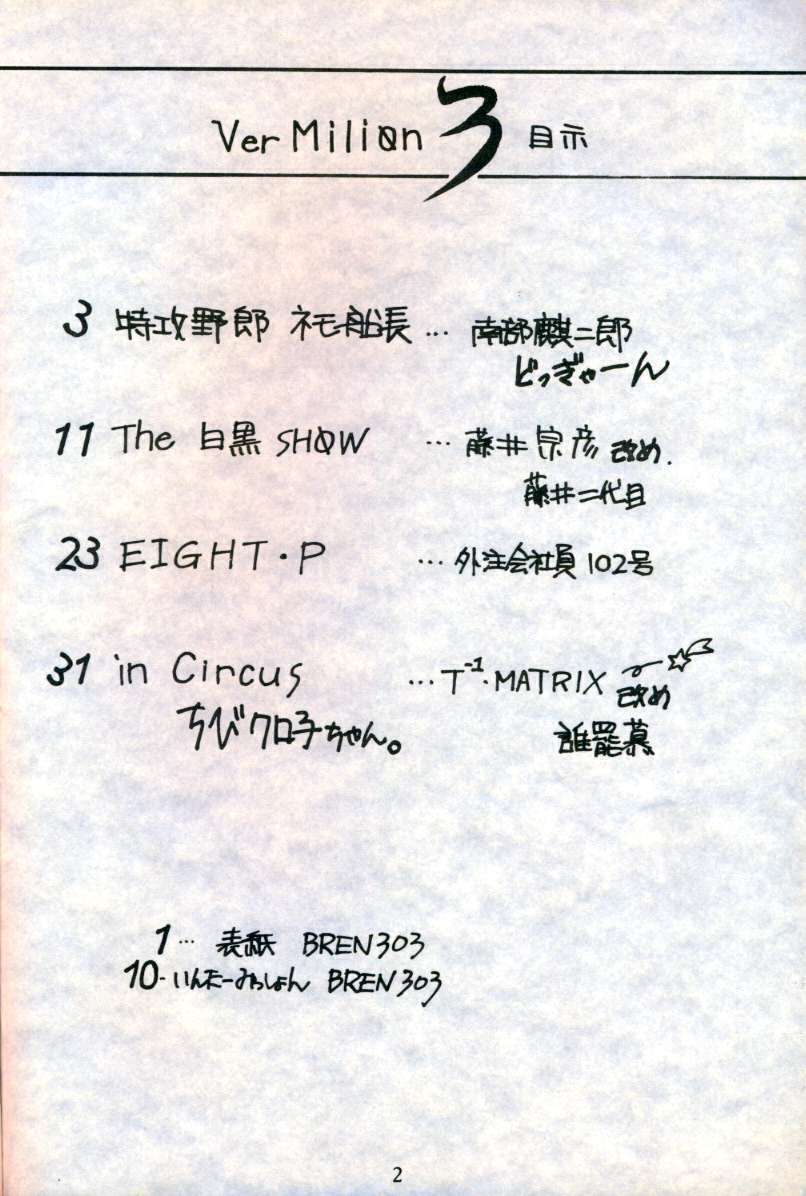 Ver Milion 3 目示
3 特攻野郎 ネモ船長 … 南部麒二郎
どっぎゃーん
11 The 白黒 SHOW … 藤井宗彦 改め.
藤井二代目
23 EIGHT・P … 外注会社員 102号
31 in Circus … T⁻¹・MATRIX 改め
ちびクロ子ちゃん。 誰罷慕
1 … 表紙 BREN303
10 - いんたーみっしょん BREN303
2